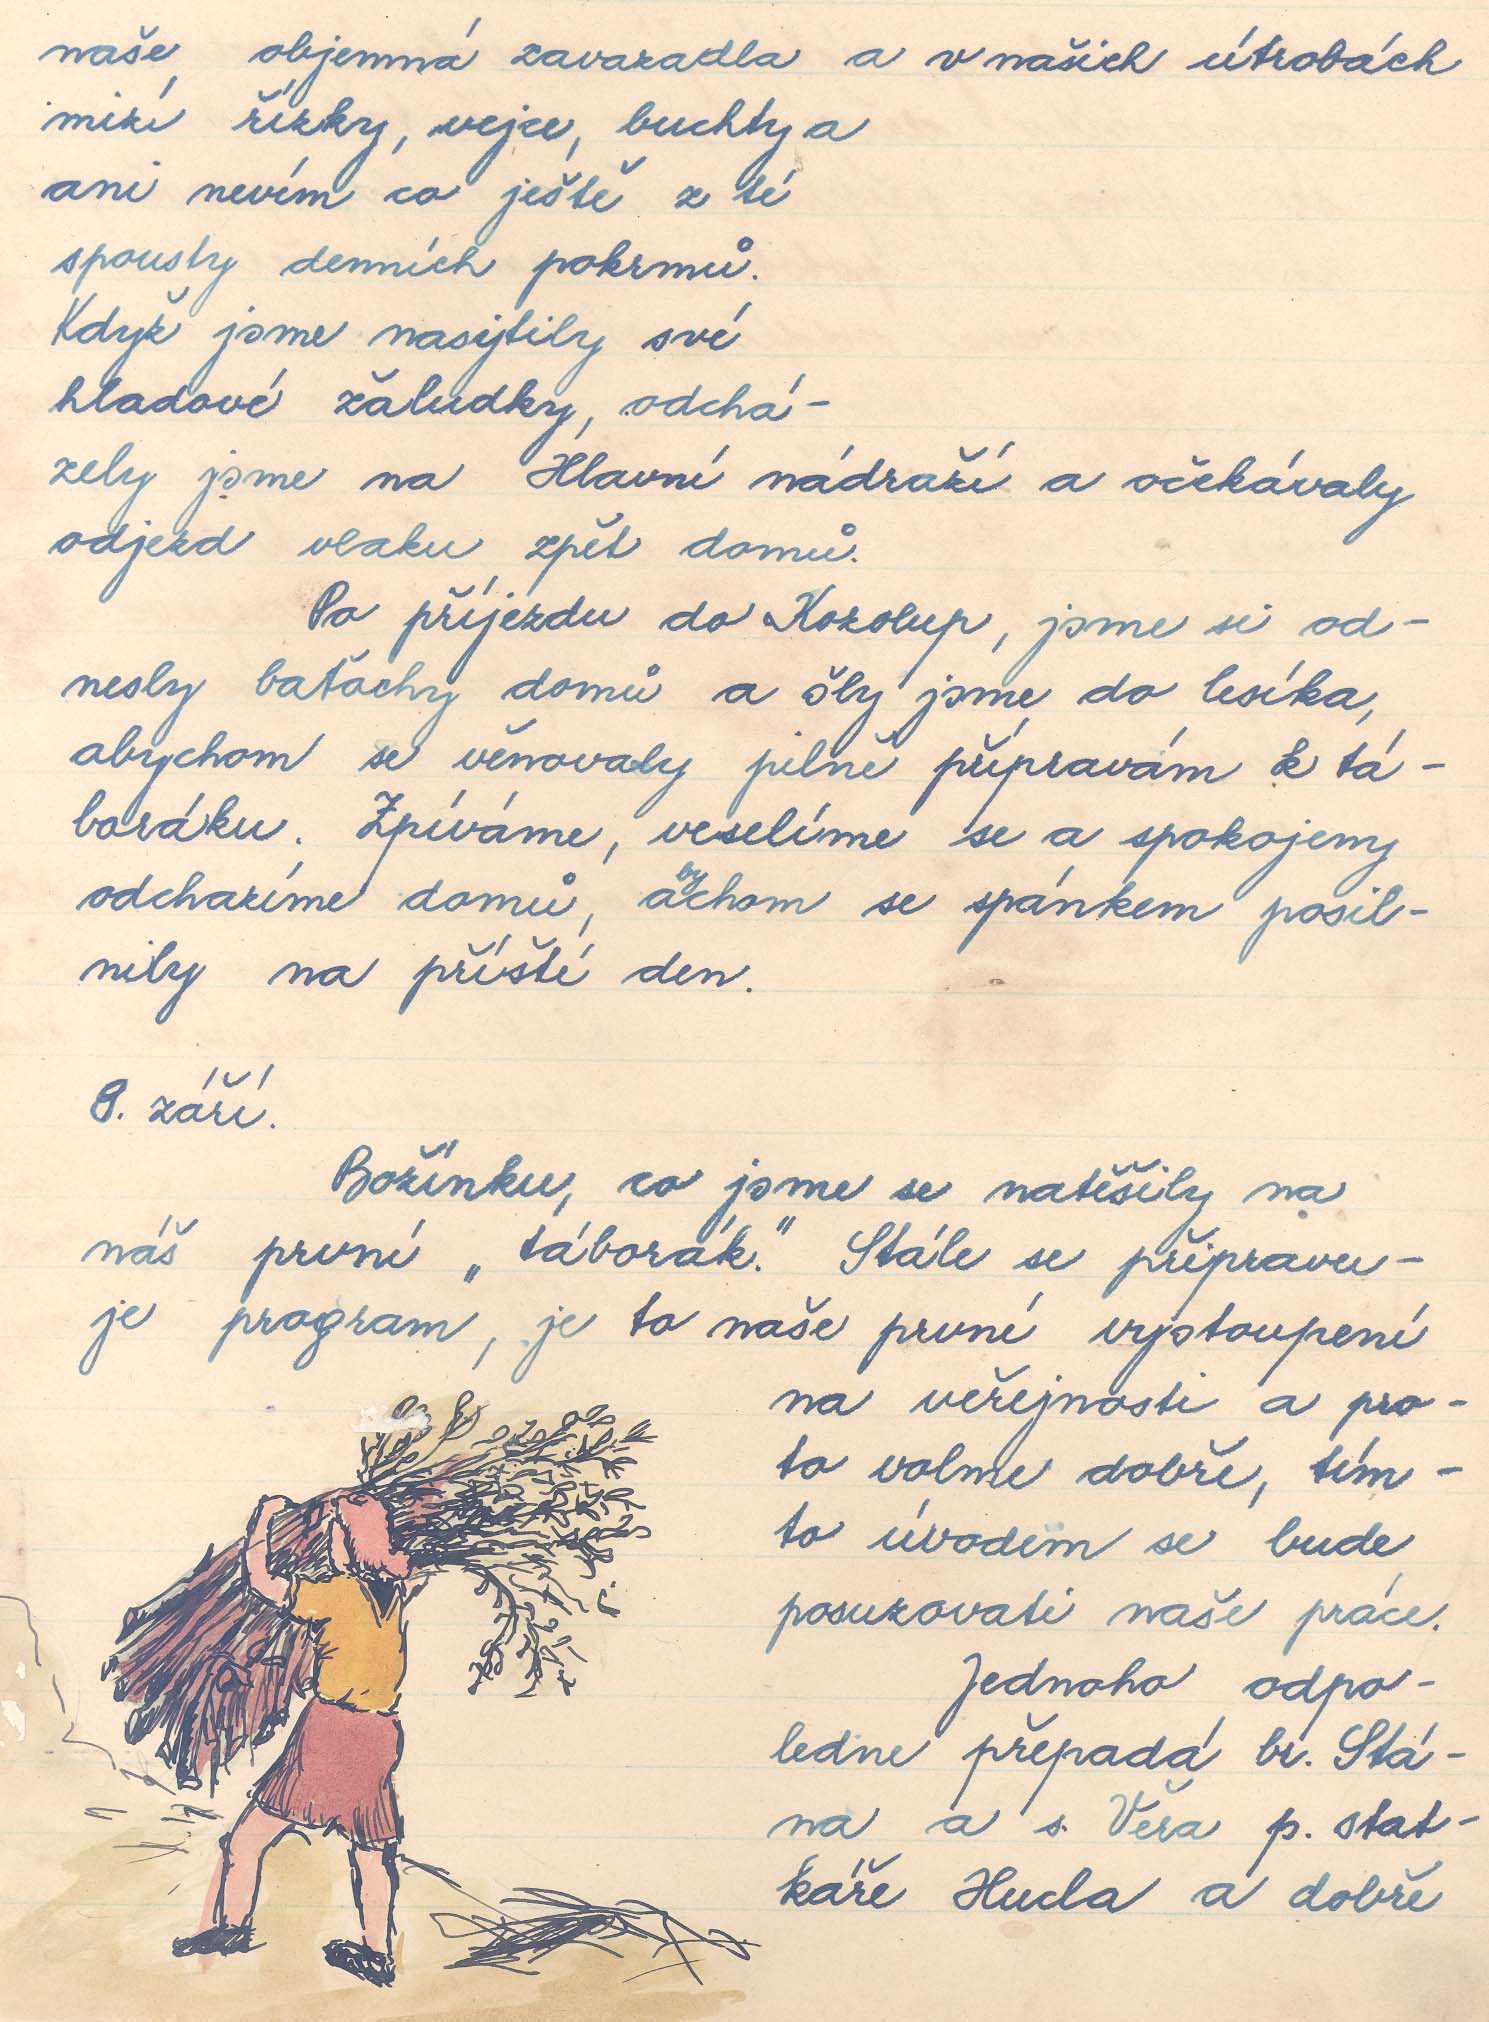 naše objemná zavazadla a v našich útrobách
mizí řízky, vejce, buchty a
ani nevím co ještě z té
spousty denních pokrmů.
Když jsme nasytily své
hladové žaludky, odchá-
zely jsme na Hlavní nádraží a očekávaly
odjezd vlaku zpět domů.
Po příjezdu do Kozolup, jsme si od-
nesly baťochy domů a šly jsme do lesíka,
abychom se věnovaly pilně přípravám k tá-
boráku. Zpíváme, veselíme se a spokojeny
odcházíme domů, abychom se spánkem posil-
nily na příští den.
8. září.
Božínku, co jsme se natěšily na
náš první „táborák." Stále se připravu-
je program, je to naše první vystoupení
na veřejnosti a pro-
to volme dobře, tím-
to úvodem se bude
posuzovati naše práce.
Jednoho odpo-
ledne přepadá br. Stá-
na a s. Věra p. stat-
káře Hucla a dobře